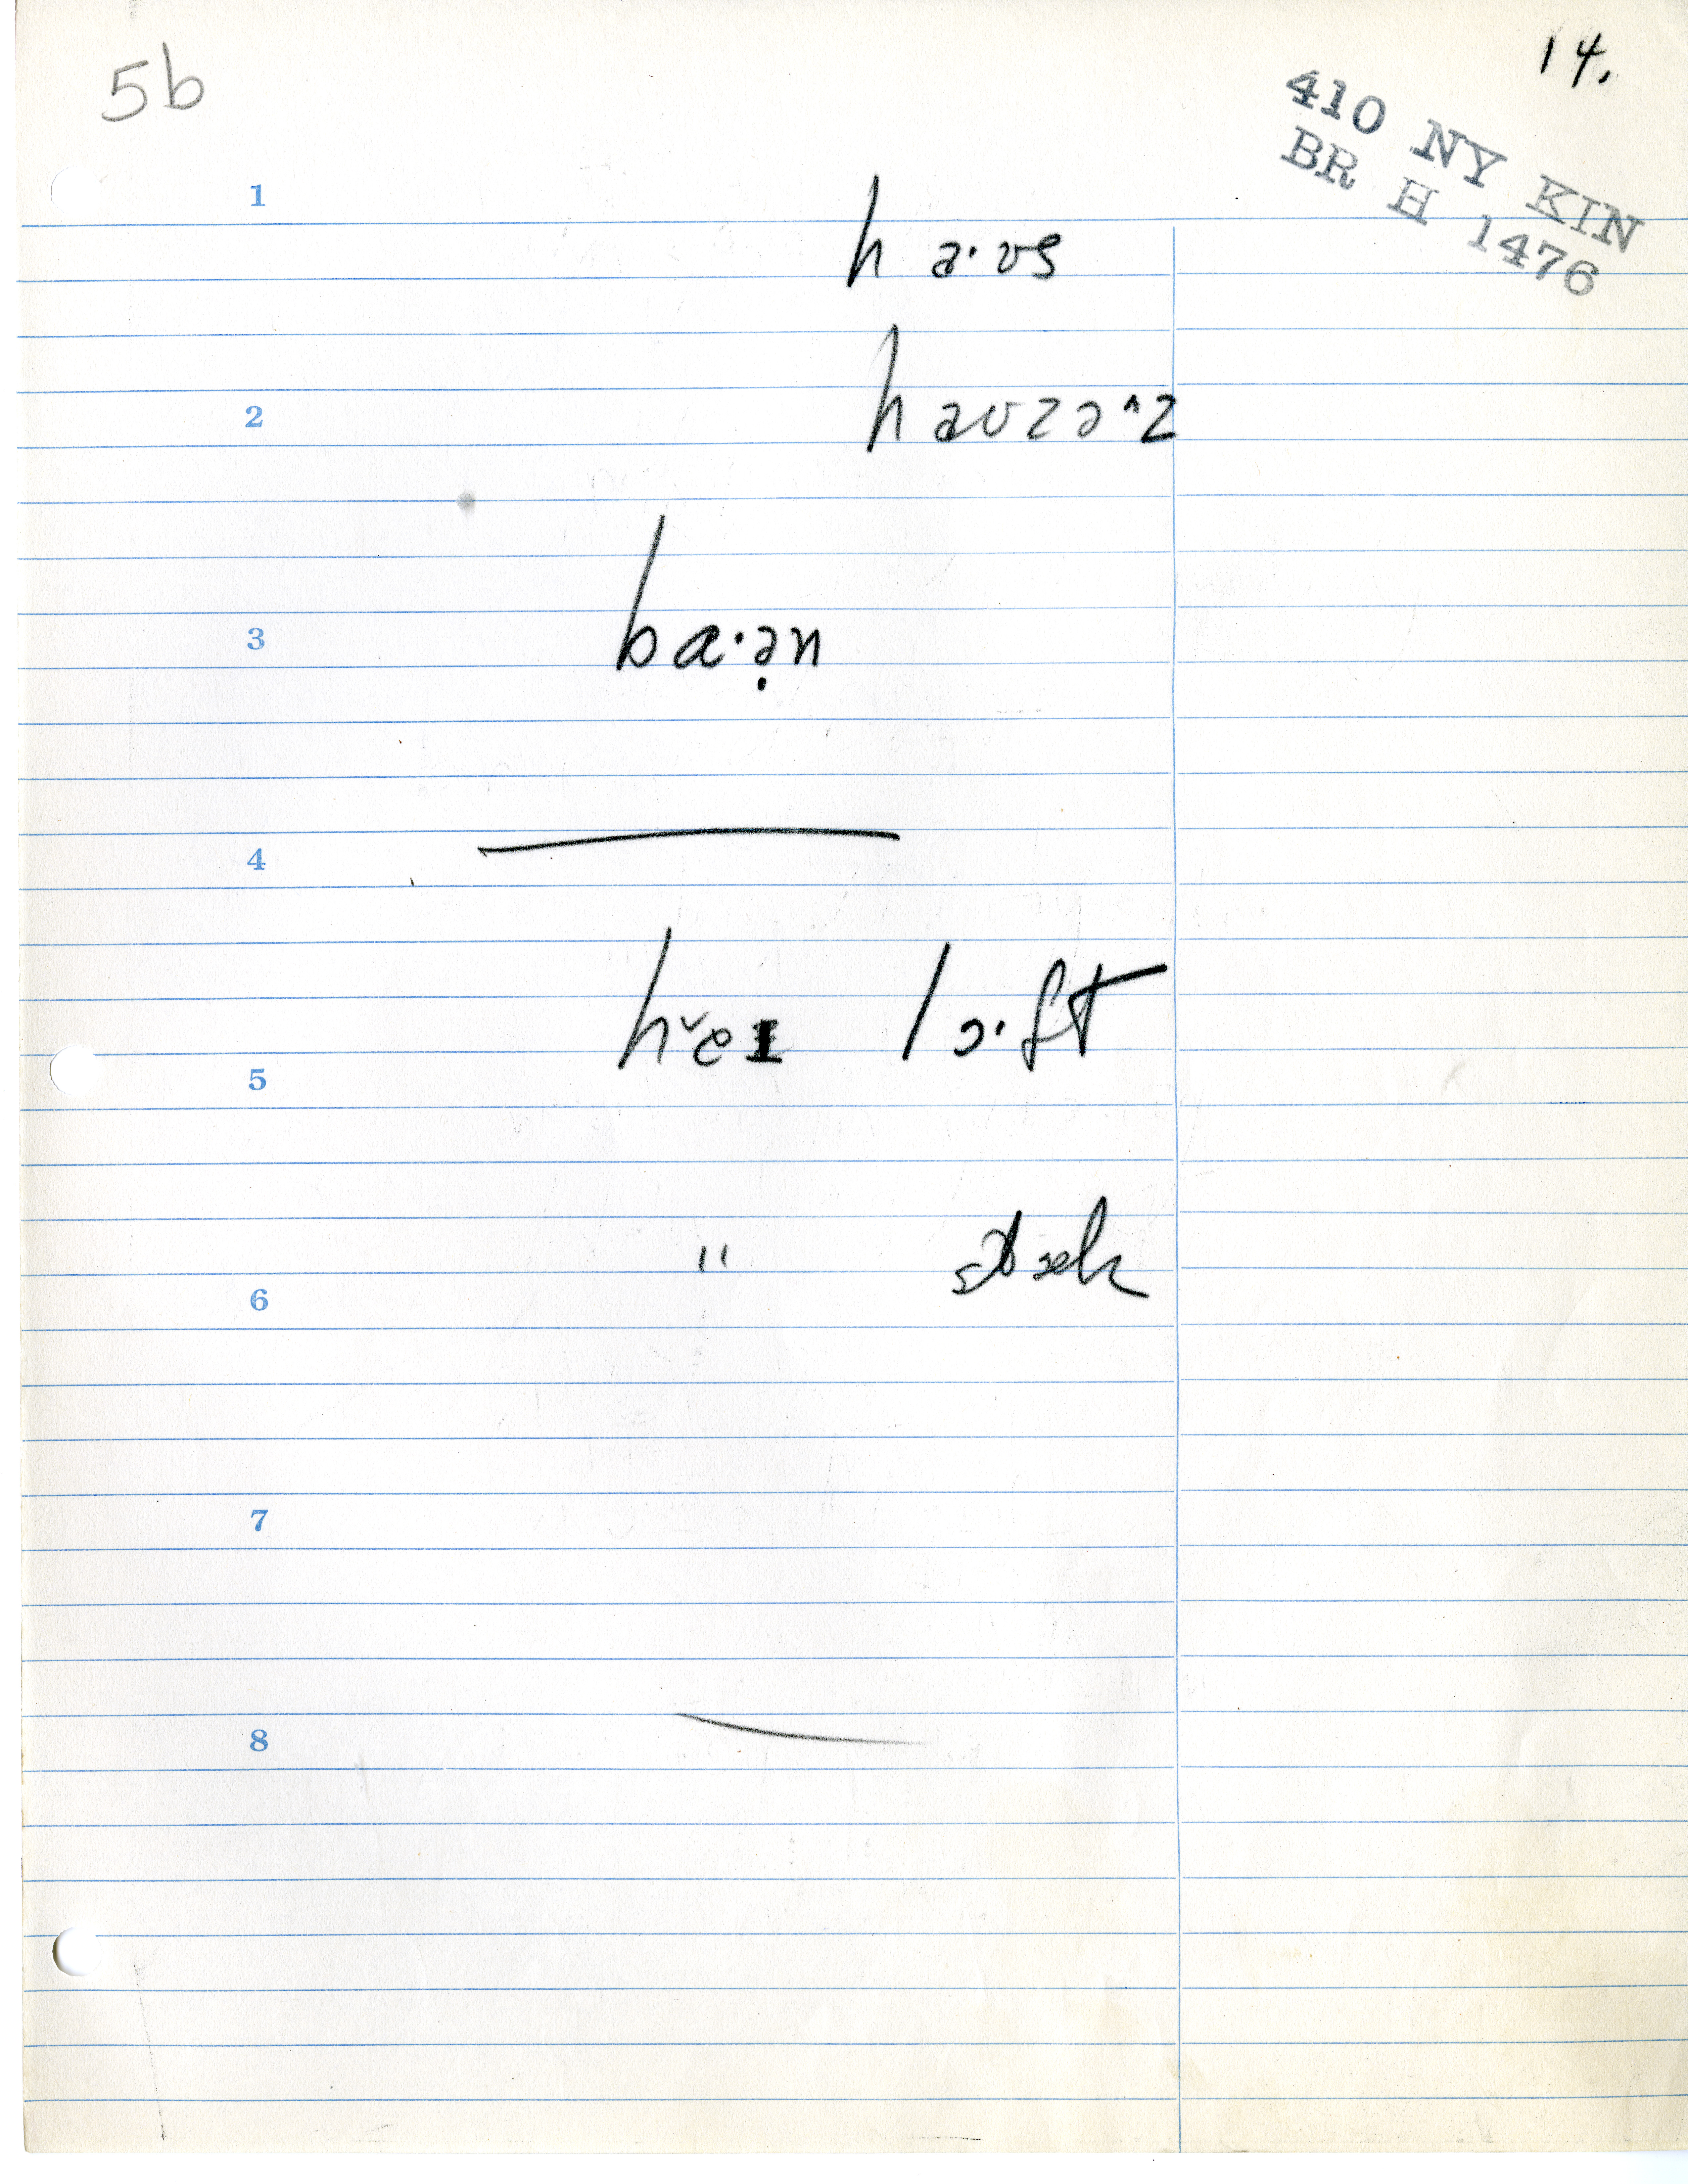 5b
14.
410 NY KIN
BR H 1476
1
h a·ʊs
2
haʊzə^z
3
ba·ə̣n
4
5
hˇeɪ lɔ·ft
6
"
7
8